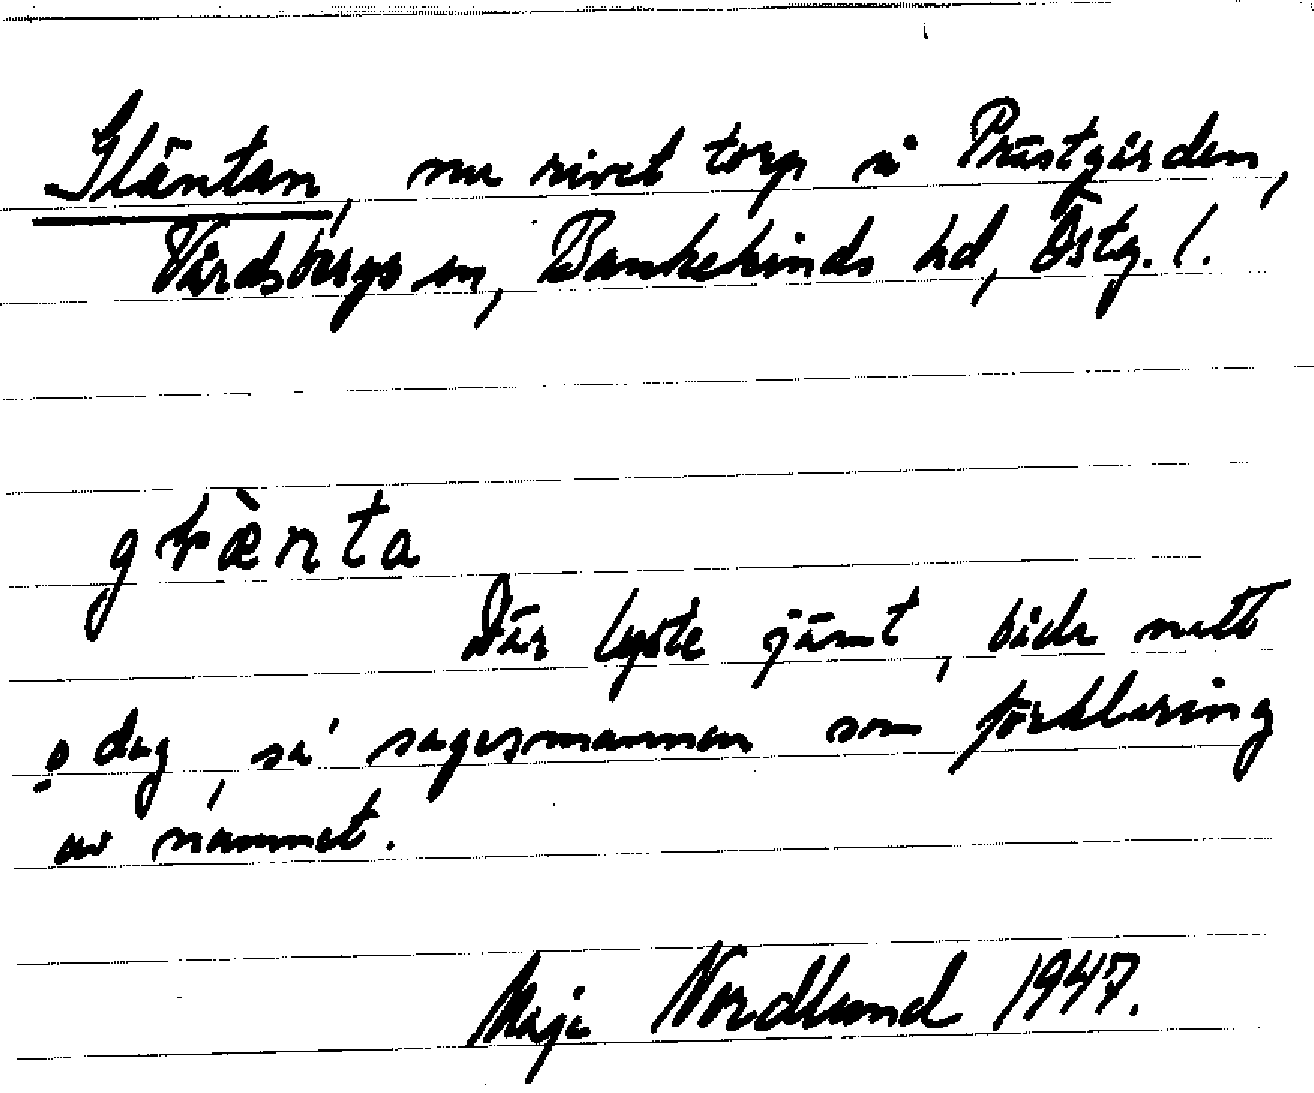 Gläntan, nu rivet torp å Prästgården,
Vårdsbergs sn, Bankekinds hd, Östg. l.
glæ̀nta
Där lyste jämt, både natt
o dag, sa' sagesmannen som förklaring
av namnet.
Maja Nordlund 1947.